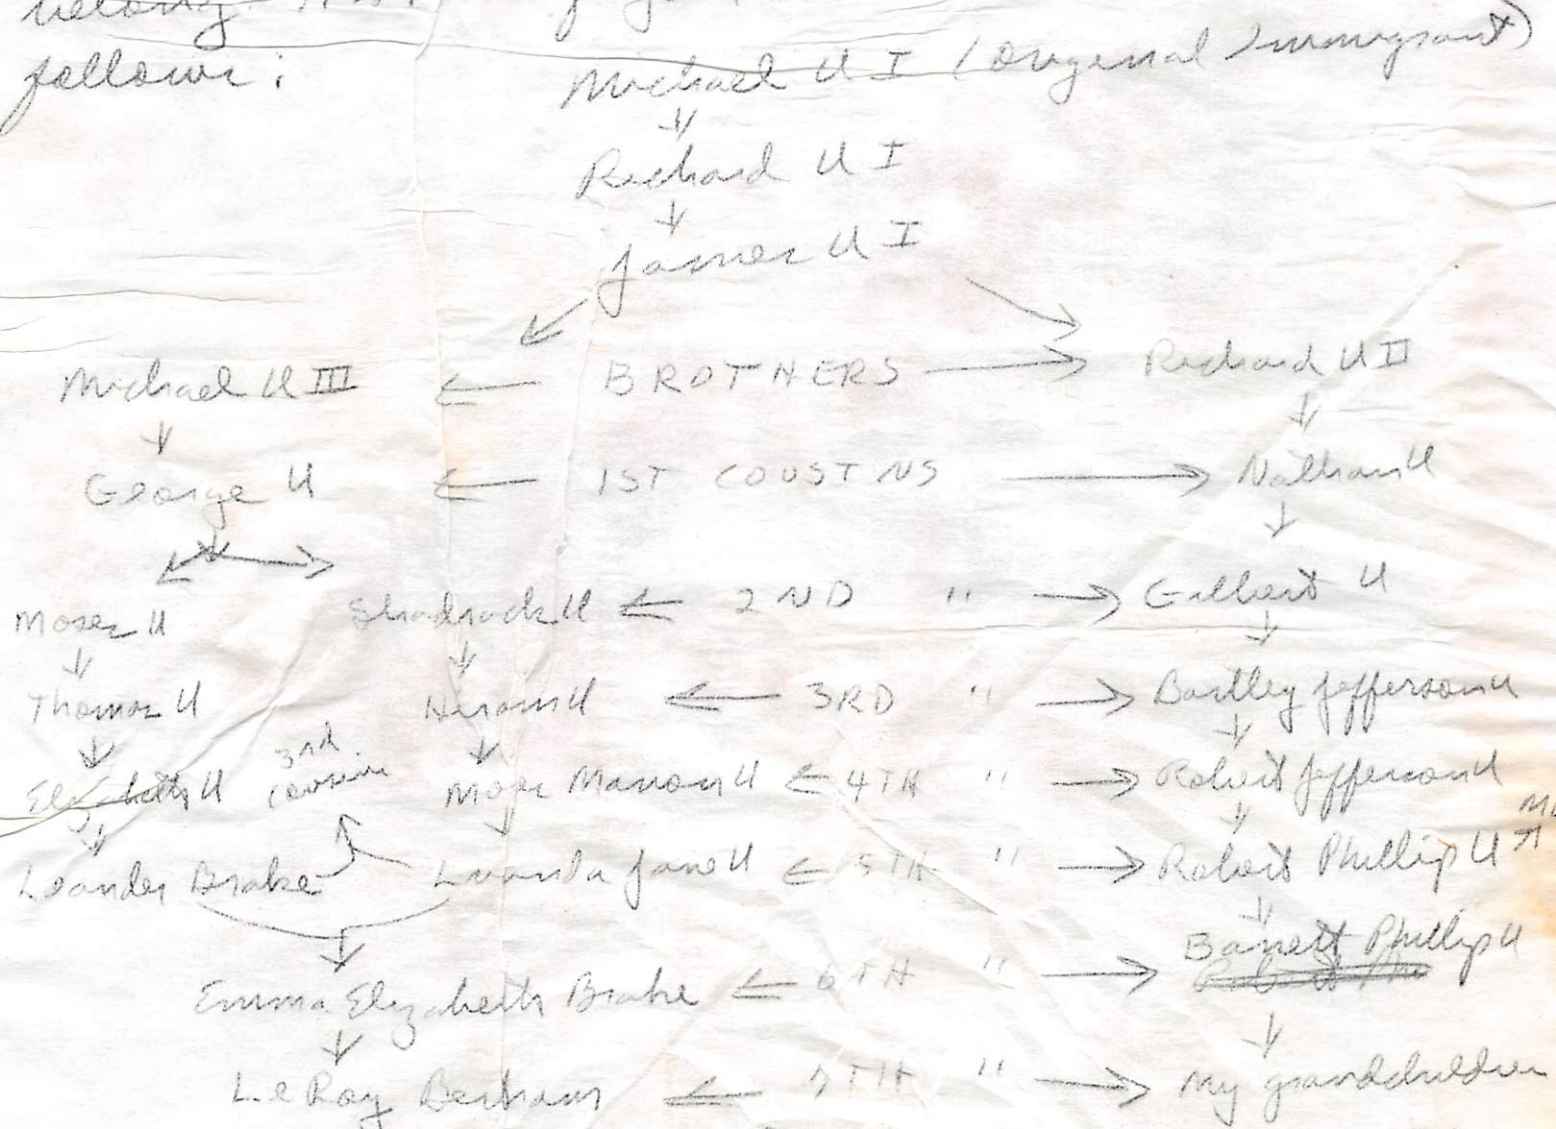 belong
follows:
Michael U I (Original Immigrant)
Richard U I
James U I
Michael U III ← BROTHERS → Richard U II
George U ← 1ST COUSINS → Nathan U
Moses U Shadrack U ← 2ND " → Gilbert U
Thomas U Hiram U ← 3RD " → Bartley Jefferson U
Elizabeth U 3rd cousins Moses Marion U ← 4TH " → Robert Jefferson U
Leander Brake Luanda Jane U ← 5TH " → Robert Phillip U
Emma Elizabeth Brake ← 6TH " → Barrett Phillip U
LeRoy Bertram ← 7TH " → My grandchildren